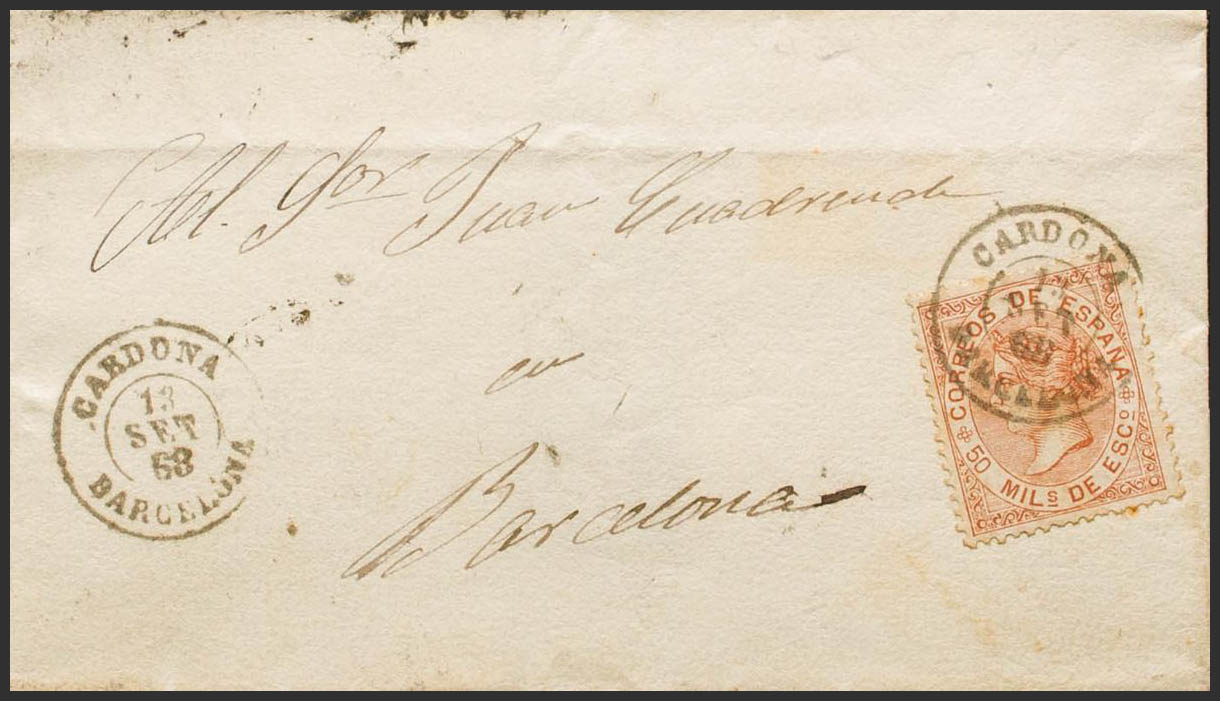 Al. Sor Juan Cuadrench
en
Barcelona
CARDONA
13
SET
68
BARCELONA
CARDONA
SET
BARCELONA
CORREOS DE ESPAÑA
50 MILs DE ESCO